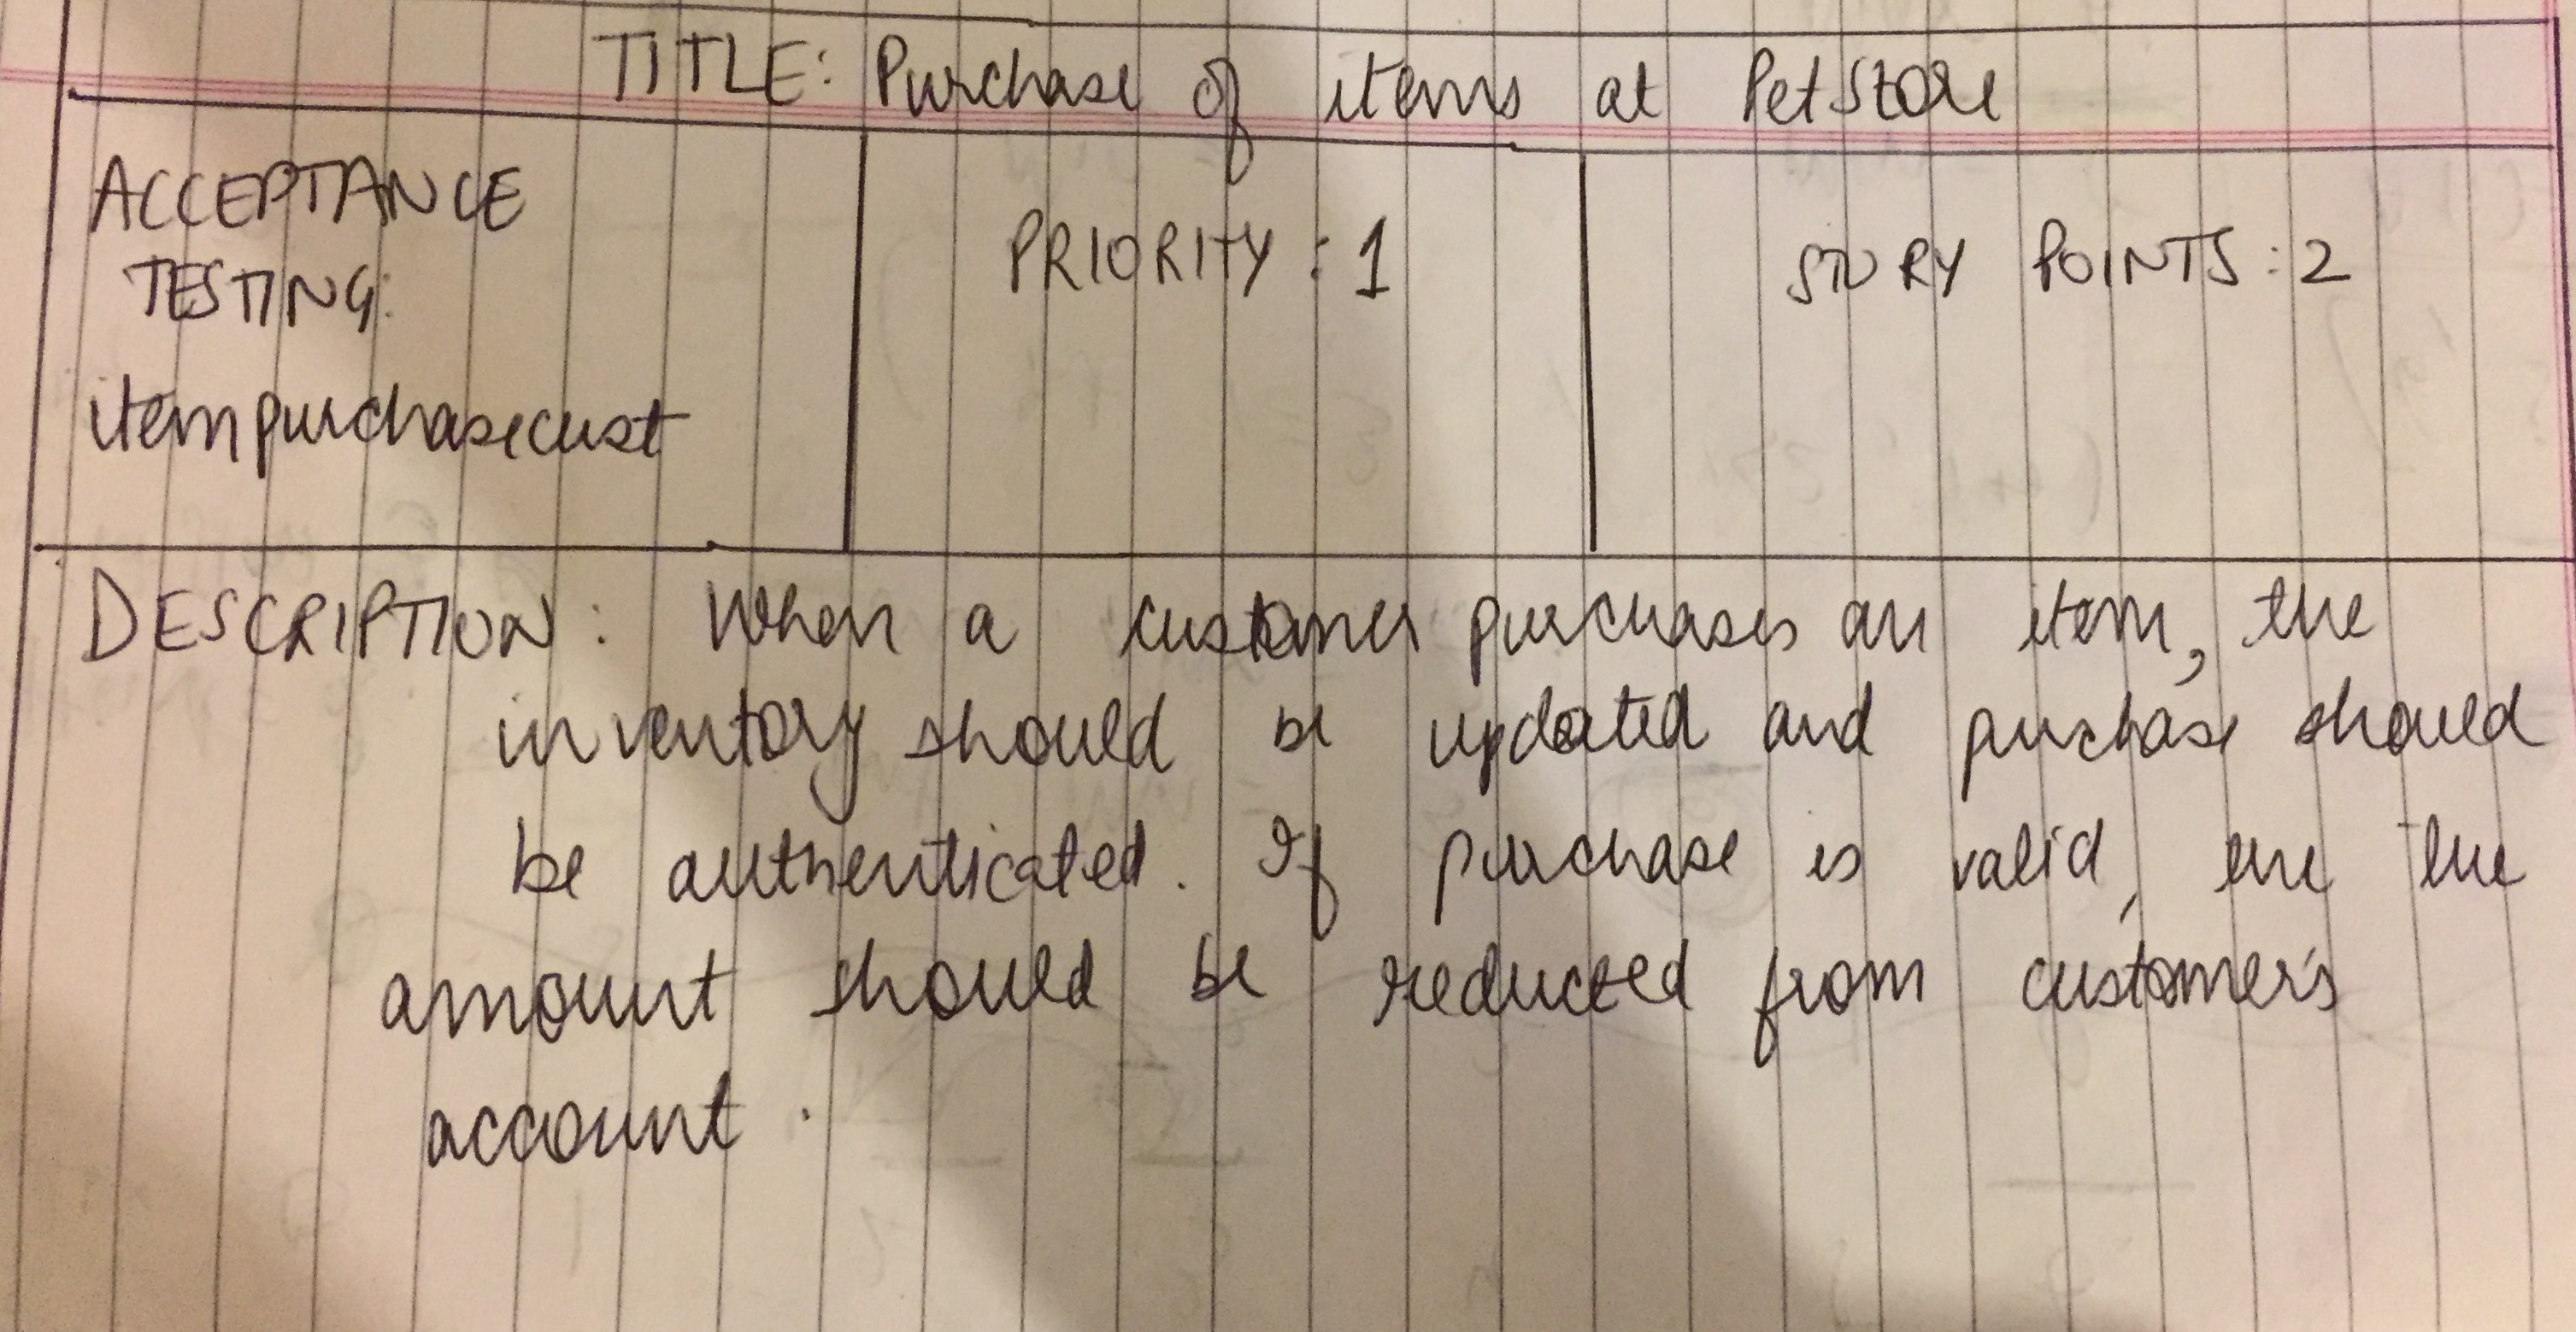 TITLE: Purchase of items at PetStore
ACCEPTANCE
TESTING:
PRIORITY : 1
STORY POINTS : 2
itempurchasecust
DESCRIPTION: When a customer purchases an item, the
inventory should be updated and purchase should
be authenticated. If purchase is valid, the the
amount should be reduced from customer's
account.